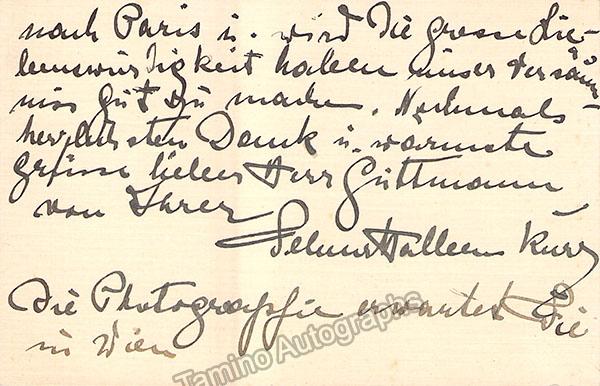 nach Paris u. wird die grosse Lie-
benswürdigkeit haben unser Versäum-
niss gut zu machen. Nochmals
herzlichsten Dank u. warmste
grüsse lieber Herr Guttmann
von Ihrer
Selma Halban Kurz
Die Photographie erwartet Sie
in Wien
Tamino Autographs